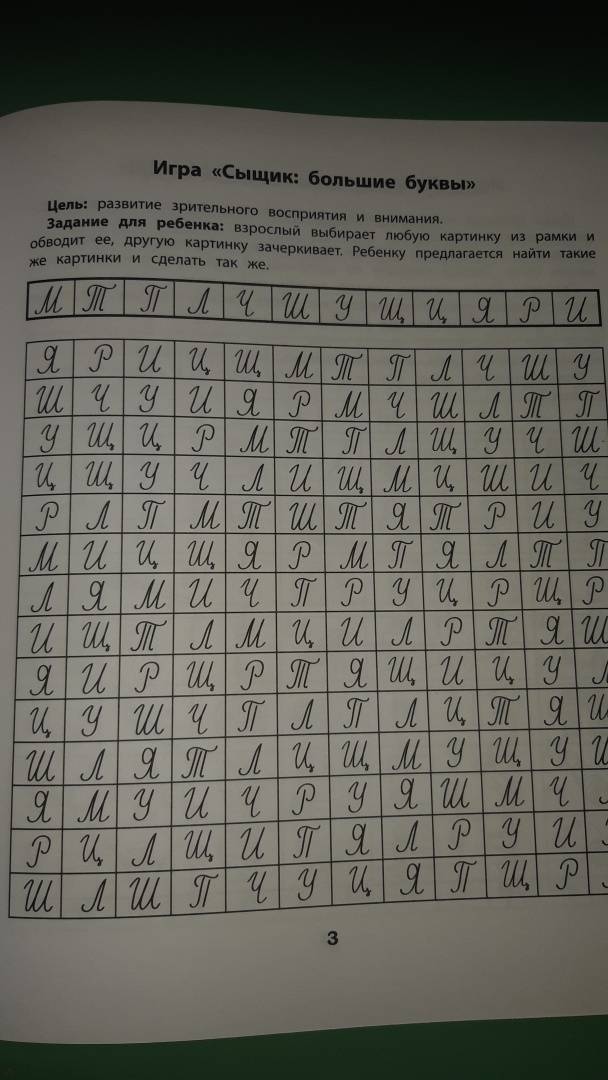 Игра «Сыщик: большие буквы»
Цель: развитие зрительного восприятия и внимания.
Задание для ребенка: взрослый выбирает любую картинку из рамки и
обводит ее, другую картинку зачеркивает. Ребенку предлагается найти такие
же картинки и сделать так же.
М Т П Л Ч Ш У Щ Ц Я Р И
Я Р И Ц Щ М Т П Л Ч Ш У
Ш Ч У И Я Р М Ч Ш Л Т П
У Щ Ц Р М Т П Л Щ У Ч Ш
Ц Щ У Ч Л И Щ М Ц Ш И Ч
Р Л П М Т Ш Т Я Т Р И У
М И Ц Щ Я Р М П Я Л Т П
Л Я М И Ч П Р У Ц Р Щ Р
И Щ Т Л М Ц И Л Р Т Я Ш
Я И Р Щ Р Т Я Щ И Ц У
Ц У Ш Ч П Л П Л Ц Т Я
Ш Л Я Т Л Ц Щ М У Щ У
Я М У И Ч Р У Я Ш М Ч
Р Ц Л Щ И П Я Л Р У И
Ш Л Ш П Ч У Ц Я П Щ Р
3